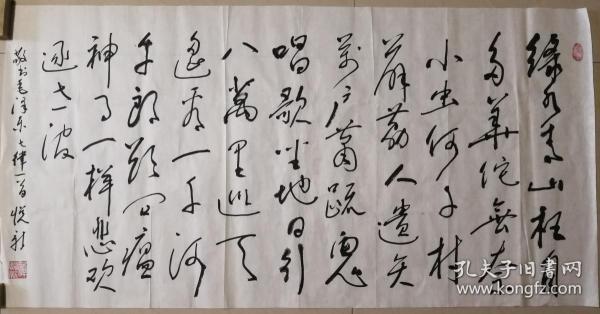 绿水青山枉自
多華佗無奈
小虫何千村
薜荔人遗矢
萬户萧疏鬼
唱歌坐地日行
八萬里巡天
遥看一千河
牛郎欲问瘟
神事一样悲欢
逐逝波
敬书毛泽东七律一首
孔夫子旧书网
www.kongfz.com